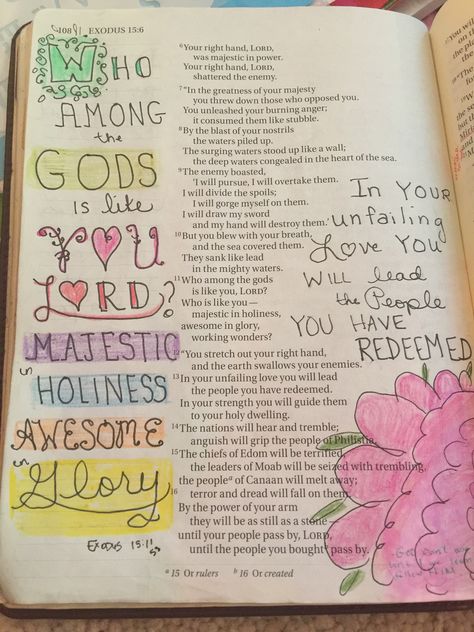 108 EXODUS 15:6
WHO
AMONG
the
GODS
is like
YOU
LORD?
MAJESTIC
in
HOLINESS
AWESOME
in
Glory
EXODUS 15:11
6 Your right hand, LORD,
was majestic in power.
Your right hand, LORD,
shattered the enemy.
7 "In the greatness of your majesty
you threw down those who opposed you.
You unleashed your burning anger;
it consumed them like stubble.
8 By the blast of your nostrils
the waters piled up.
The surging waters stood up like a wall;
the deep waters congealed in the heart of the sea.
9 The enemy boasted,
'I will pursue, I will overtake them.
I will divide the spoils;
I will gorge myself on them.
I will draw my sword
and my hand will destroy them.'
10 But you blew with your breath,
and the sea covered them.
They sank like lead
in the mighty waters.
11 Who among the gods
is like you, LORD?
Who is like you—
majestic in holiness,
awesome in glory,
working wonders?
12 "You stretch out your right hand,
and the earth swallows your enemies.
13 In your unfailing love you will lead
the people you have redeemed.
In your strength you will guide them
to your holy dwelling.
14 The nations will hear and tremble;
anguish will grip the people of Philistia.
15 The chiefs of Edom will be terrified,
the leaders of Moab will be seized with trembling,
the people a of Canaan will melt away;
16 terror and dread will fall on them.
By the power of your arm
they will be as still as a stone—
until your people pass by, LORD,
until the people you bought b pass by.
a 15 Or rulers b 16 Or created
In Your
unfailing
Love You
Will lead
the People
YOU HAVE
REDEEMED